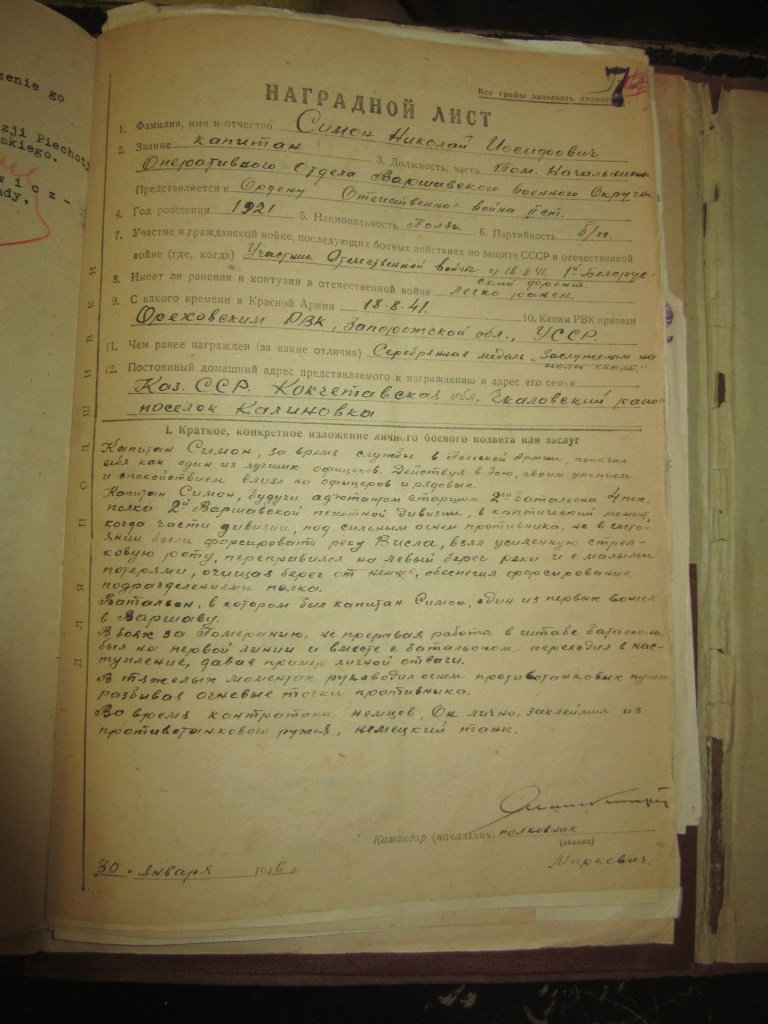 zenie go
zji Piechoty
skiego.
w i c z -
ady,
Все графы заполнять
7
НАГРАДНОЙ ЛИСТ
1. Фамилия, имя и отчество Симон Николай Иосифович
2. Звание капитан 3. Должность, часть Пом. Начальника
Оперативного Отдела Варшавского военного Округа
Представляется к Ордену Отечественной война II ст.
4. Год рождения 1921 5. Национальность Поляк 6. Партийность б/п.
7. Участие в гражданской войне, последующих боевых действиях по защите СССР и отечественной
войне (где, когда) Участник Отечественной войны с 18.8.41. 1й Белорус-
ский фронт.
8. Имеет ли ранения и контузии в отечественной войне легко ранен.
9. С какого времени в Красной Армии 18.8.41. 10. Каким РВК призван
Ореховским РВК, Запорожской обл., УССР.
11. Чем ранее награжден (за какие отличия) Серебрянная медаль „Заслуженным на
поли хвалы"
12. Постоянный домашний адрес представляемого к награждению и адрес его семьи
Каз. ССР Кокчетавская обл. Чкаловский район
поселок Калиновка
I. Краткое, конкретное изложение личного боевого подвига или заслуг
Капитан Симон, за время службы в Польской Армии, показал
себя как один из лучших офицеров. Действуя в бою, своим умением
и спокойствием влиял на офицеров и рядовых.
Капитан Симон, будучи адютантом старшим 2го батальона 4 пех.
полка 2й Варшавской пехотной дивизии, в критический момент,
когда части дивизии, под сильным огнем противника, не в состо-
янии были форсировать реку Висла, взял усиленную стрел-
ковую роту, переправился на левый берег реки и с малыми
потерями, очищая берег от немце, обеспечил форсирование
подразделениями полка.
Батальон, в котором был капитан Симон, один из первых вошел
в Варшаву.
В боях за Померанию, не прерывая работы в штабе батальона
был на первой линии и вместе с батальоном переходил в нас-
тупление, давая пример личной отваги.
В тяжелых моментах руководил огнем противотанковых пушек
разбивая огневые точки противника.
Во время контратаки немцев, Он лично, заклеймил из
противотанкового ружья, немецкий танк.
Командир (начальник) полковник
(звание)
Маркевич.
30 января 1946 г.
ДЛЯ ПОДШИВКИ